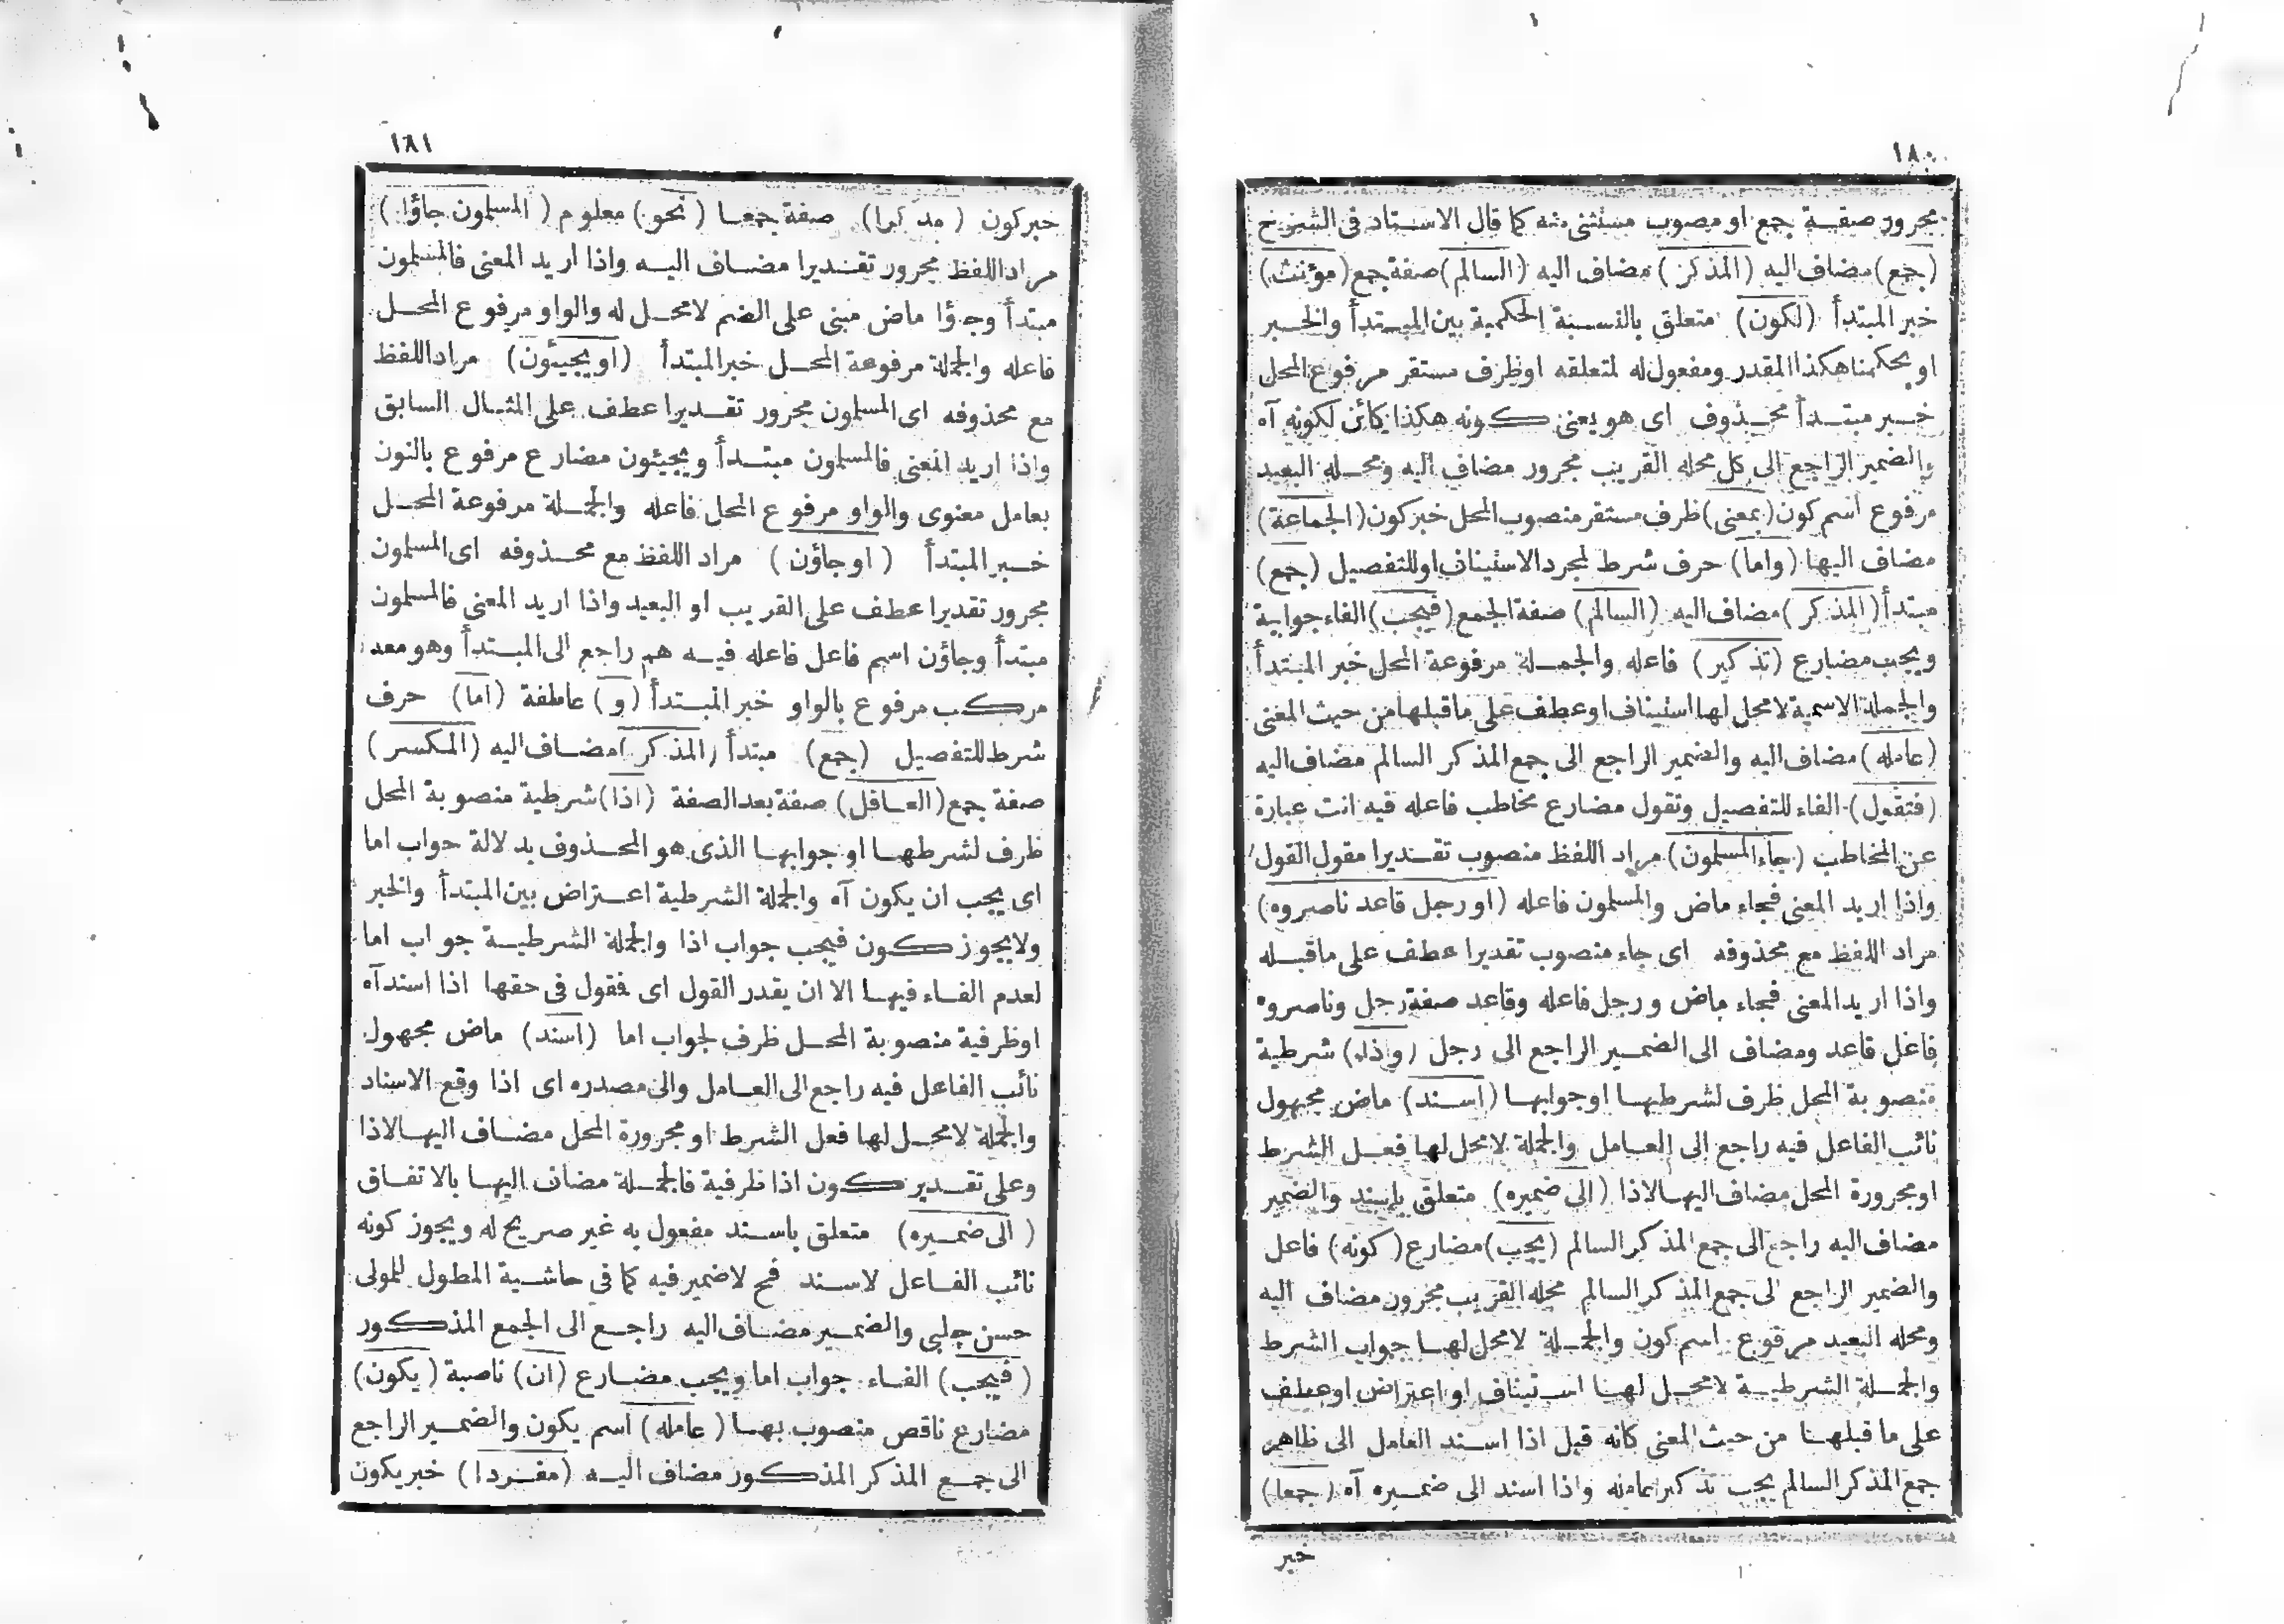 ١٨٠
مجرور صفة جمع او منصوب مستثنى منه كما قال الاستاد فى الشرح
(جمع) مضاف اليه (المذكر) مضاف اليه (السالم) صفة جمع (مؤنث)
خبر المبتدأ (لكون) متعلق بالنسبة الحكمية بين المبتدأ والخبر
او بحكمنا هكذا المقدر ومفعول له لمتعلقه اوظرف مستقر مرفوع المحل
خبر مبتدأ محذوف اى هو يعنى كونه هكذا كائن لكونه آه
والضمير الراجع الى كل محله القريب مجرور مضاف اليه ومحله البعيد
مرفوع اسم كون (بمعنى) ظرف مستقر منصوب المحل خبر كون (الجماعة)
مضاف اليها (واما) حرف شرط لمجرد الاستيناف اوللتفصيل (جمع)
مبتدأ (المذكر) مضاف اليه (السالم) صفة الجمع (فيجب) الفاء جوابية
ويجب مضارع (تذكير) فاعله والجملة مرفوعة المحل خبر المبتدأ
والجملة الاسمية لامحل لها استيناف اوعطف على ماقبلها من حيث المعنى
(عامله) مضاف اليه والضمير الراجع الى جمع المذكر السالم مضاف اليه
(فتقول) الفاء للتفصيل وتقول مضارع مخاطب فاعله فيه انت عبارة
عن المخاطب (جاء المسلمون) مراد اللفظ منصوب تقديرا مقول القول
واذا اريد المعنى فجاء ماض والمسلمون فاعله (او رجل قاعد ناصروه)
مراد اللفظ مع محذوفه اى جاء منصوب تقديرا عطف على ماقبله
واذا اريد المعنى فجاء ماض ورجل فاعله وقاعد صفة رجل وناصروه
فاعل قاعد ومضاف الى الضمير الراجع الى رجل (واذا) شرطية
منصوبة المحل ظرف لشرطها اوجوابها (اسند) ماض مجهول
نائب الفاعل فيه راجع الى العامل والجملة لامحل لها فعل الشرط
اومجرورة المحل مضاف اليها لاذا (الى ضميره) متعلق باسند والضمير
مضاف اليه راجع الى جمع المذكر السالم (يجب) مضارع (كونه) فاعل
والضمير الراجع الى جمع المذكر السالم محله القريب مجرور مضاف اليه
ومحله البعيد مرفوع اسم كون والجملة لامحل لها جواب الشرط
والجملة الشرطية لامحل لها استيناف او اعتراض اوعطف
على ما قبلها من حيث المعنى كانه قيل اذا اسند العامل الى ظاهر
جمع المذكر السالم يجب تذكير عامله واذا اسند الى ضميره آه (جمعا)
خبر
١٨١
خبر كون (مذكرا) صفة جمعا (نحو) معلوم (المسلمون جاؤا)
مراد اللفظ مجرور تقديرا مضاف اليه واذا اريد المعنى فالمسلمون
مبتدأ وجاؤا ماض مبنى على الضم لامحل له والواو مرفوع المحل
فاعله والجملة مرفوعة المحل خبر المبتدأ (او يجيئون) مراد اللفظ
مع محذوفه اى المسلمون مجرور تقديرا عطف على المثال السابق
واذا اريد المعنى فالمسلمون مبتدأ ويجيئون مضارع مرفوع بالنون
بعامل معنوى والواو مرفوع المحل فاعله والجملة مرفوعة المحل
خبر المبتدأ (او جاؤن) مراد اللفظ مع محذوفه اى المسلمون
مجرور تقديرا عطف على القريب او البعيد واذا اريد المعنى فالمسلمون
مبتدأ وجاؤن اسم فاعل فاعله فيه هم راجع الى المبتدأ وهو معه
مركب مرفوع بالواو خبر المبتدأ (و) عاطفة (اما) حرف
شرط للتفصيل (جمع) مبتدأ (المذكر) مضاف اليه (المكسر)
صفة جمع (العاقل) صفة بعد الصفة (اذا) شرطية منصوبة المحل
ظرف لشرطها او جوابها الذى هو المحذوف بدلالة جواب اما
اى يجب ان يكون آه والجملة الشرطية اعتراض بين المبتدأ والخبر
ولايجوز كون فيجب جواب اذا والجملة الشرطية جواب اما
لعدم الفاء فيها الا ان يقدر القول اى فقول فى حقها اذا اسند آه
اوظرفية منصوبة المحل ظرف لجواب اما (اسند) ماض مجهول
نائب الفاعل فيه راجع الى العامل والى مصدره اى اذا وقع الاسناد
والجملة لامحل لها فعل الشرط او مجرورة المحل مضاف اليها لاذا
وعلى تقدير كون اذا ظرفية فالجملة مضاف اليها بالاتفاق
(الى ضميره) متعلق باسند مفعول به غير صريح له ويجوز كونه
نائب الفاعل لاسند فح لاضمير فيه كما فى حاشية المطول للمولى
حسن چلبى والضمير مضاف اليه راجع الى الجمع المذكور
(فيجب) الفاء جواب اما ويجب مضارع (ان) ناصبة (يكون)
مضارع ناقص منصوب بها (عامله) اسم يكون والضمير الراجع
الى جمع المذكر المذكور مضاف اليه (مفردا) خبر يكون